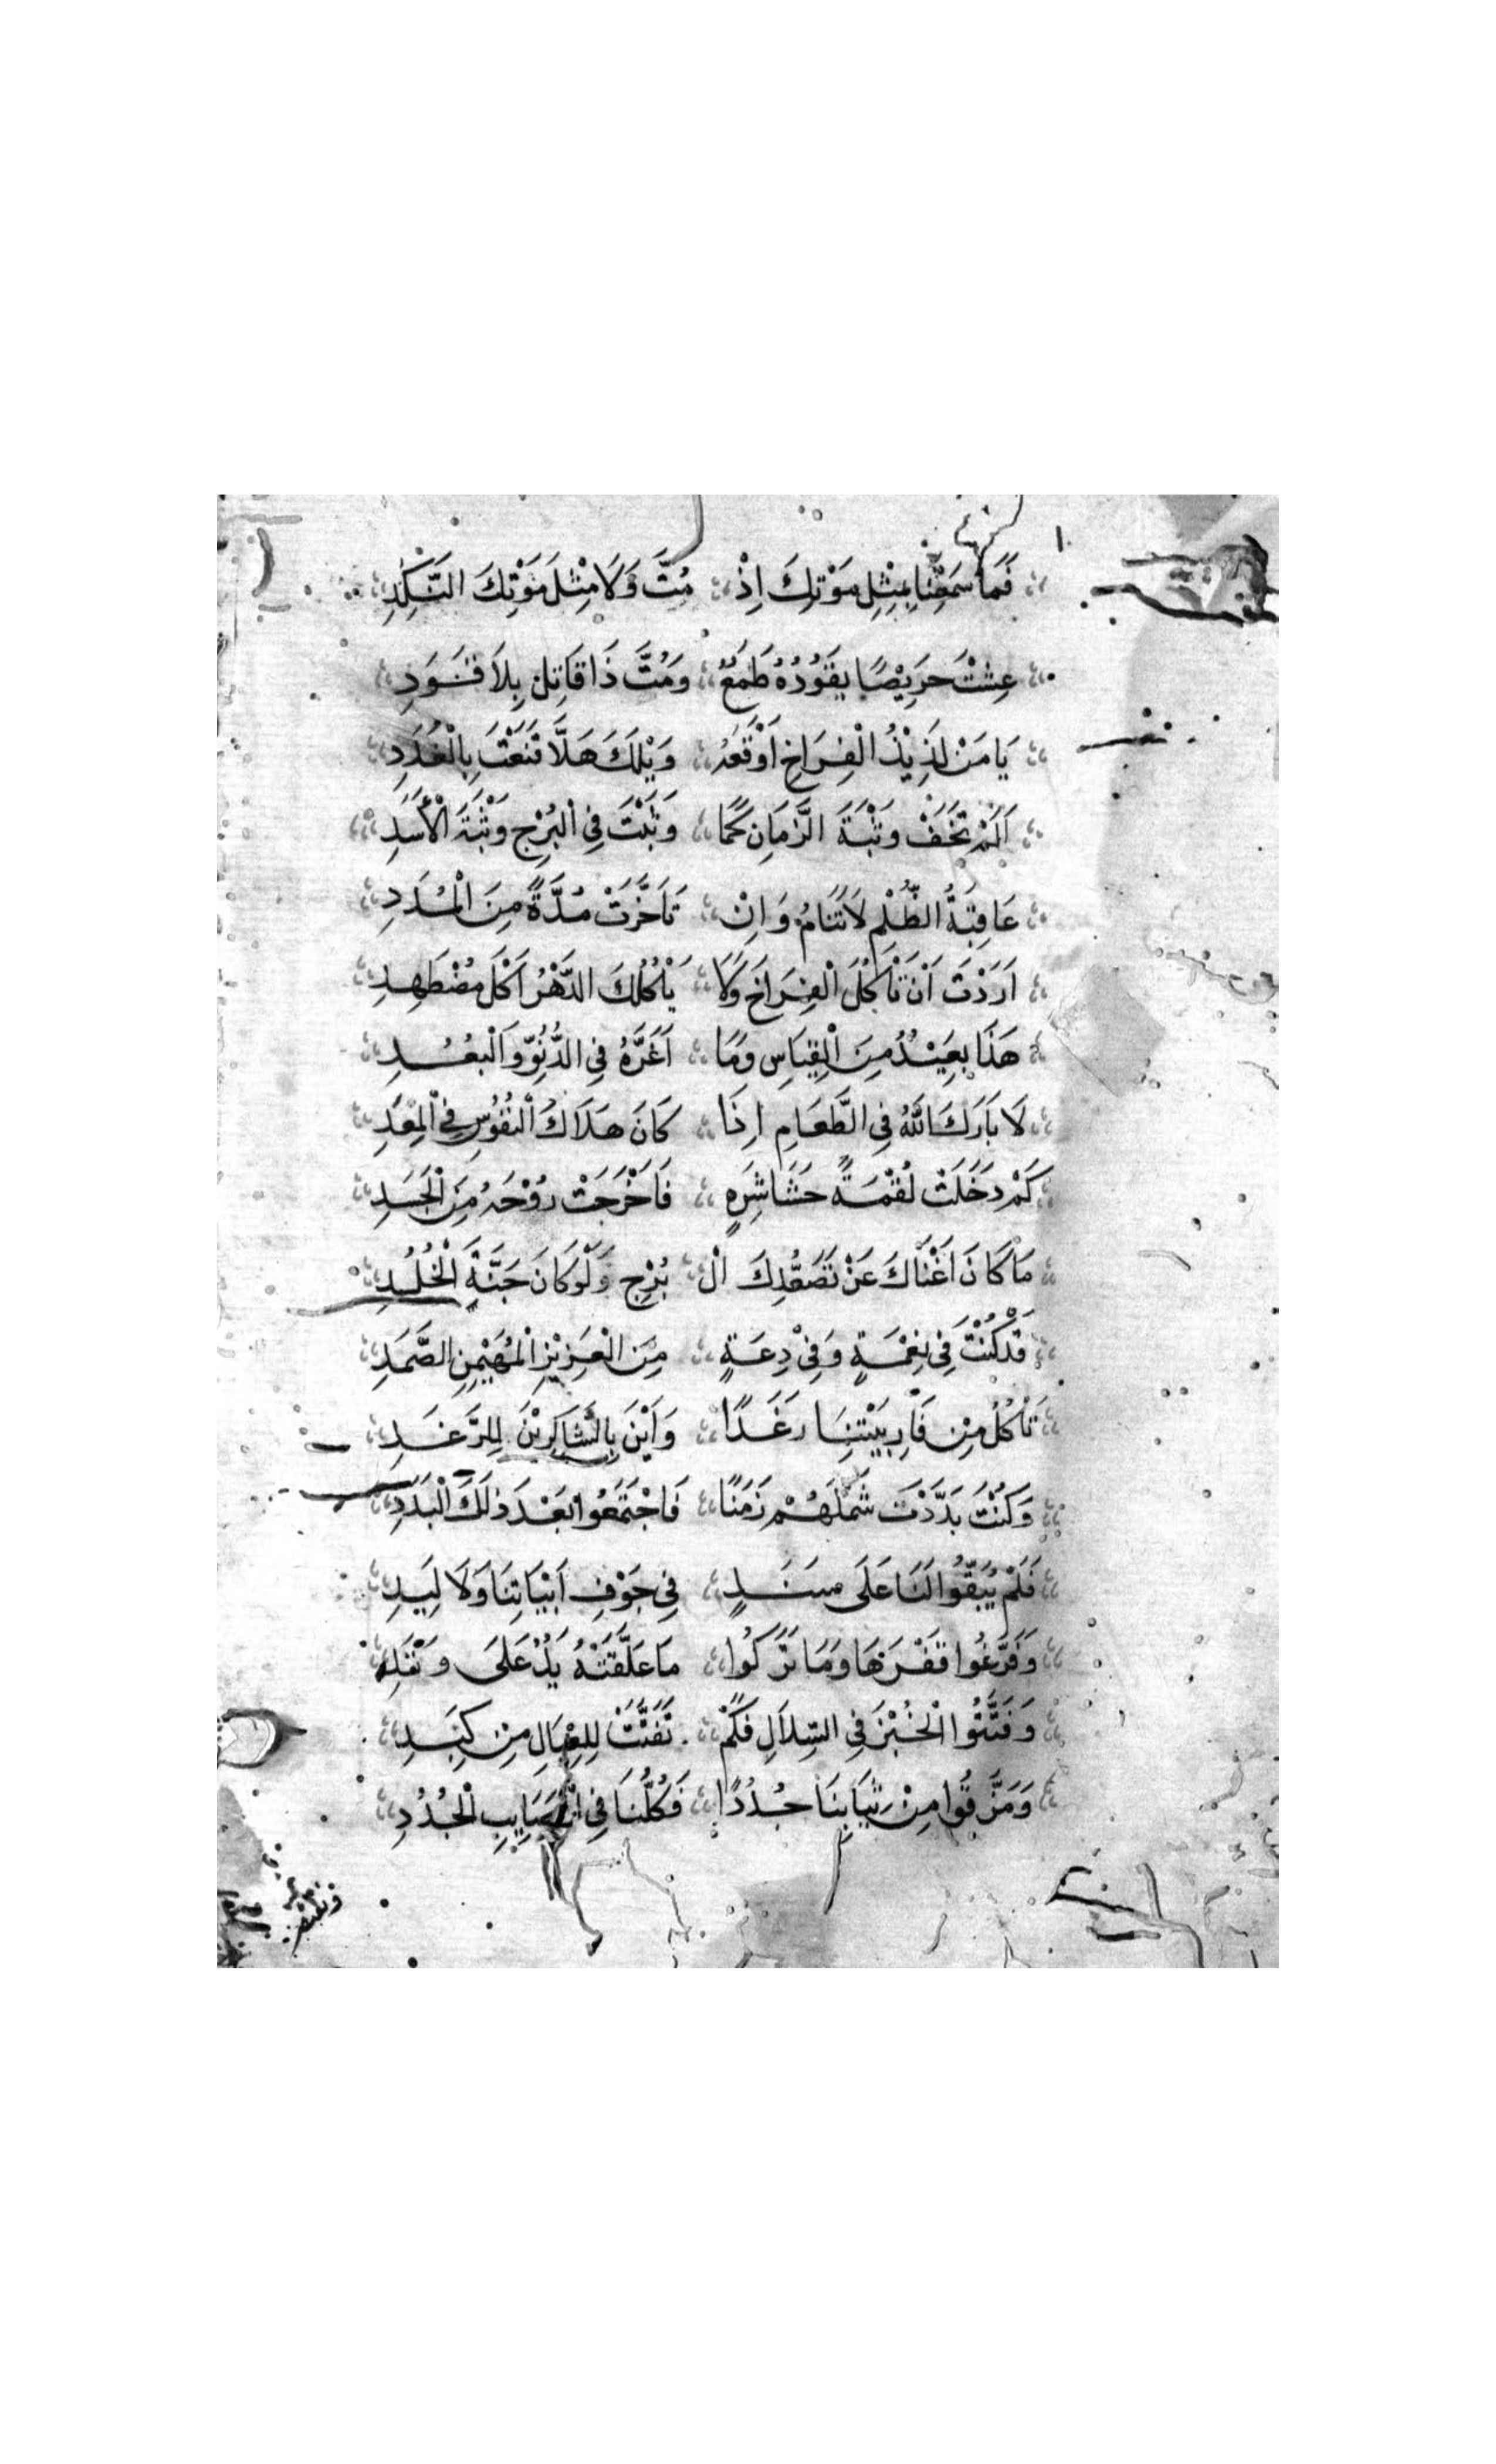 فَمَا سَمِعْنَا بِمِثْلِ مَوْتِكَ اِذْ مُتَّ وَلَا مِثْلَ مَوْتِكَ النَّكِدِ
عِشْتَ حَرِيْصًا يَقُوْدُهُ طَمَعٌ وَمُتَّ ذَا قَاتِلٍ بِلَا قَوَدِ
يَا مَنْ لَذِيْذُ الْفِرَاخِ اَوْقَعَهُ وَيْلَكَ هَلَّا قَنَعْتَ بِالْغُدَدِ
اَلَمْ تَخَفْ وَثْبَةَ الزَّمَانِ كَمَا وَثَبْتَ فِى الْبُرْجِ وَثْبَةَ الْأَسَدِ
عَاقِبَةُ الظُّلْمِ لَا تَنَامُ وَاِنْ تَاَخَّرَتْ مُدَّةً مِنَ الْمُدَدِ
اَرَدْتَ اَنْ تَأْكُلَ الْفِرَاخَ وَلَا يَأْكُلَكَ الدَّهْرُ اَكْلَ مُضْطَهِدِ
هَذَا بَعِيْدٌ مِنَ الْقِيَاسِ وَمَا اَعَزَّهُ فِى الدُّنُوِّ وَالْبُعُدِ
لَا بَارَكَ اللّٰهُ فِى الطَّعَامِ اِذَا كَانَ هَلَاكُ النُّفُوْسِ فِى الْمِعَدِ
كَمْ دَخَلَتْ لُقْمَةً حَشَا شَرِهٍ فَاَخْرَجَتْ رُوْحَهُ مِنَ الْجَسَدِ
مَا كَانَ اَغْنَاكَ عَنْ تَصَعُّدِكَ الْ بُرْجِ وَلَوْ كَانَ جَنَّةَ الْخُلُدِ
قَدْ كُنْتَ فِى نِعْمَةٍ وَفِىْ دِعَةٍ مِنَ الْعَزِيْزِ الْمُهَيْمِنِ الصَّمَدِ
تَأْكُلُ مِنْ فَأْرِ بَيْتِنَا رَغَدًا وَاَيْنَ بِالشَّاكِرِيْنَ لِلرَّغَدِ
وَكُنْتَ بَدَّدْتَ شَمْلَهُمْ زَمَنًا فَاجْتَمَعُوا بَعْدَ ذٰلِكَ الْبَدَدِ
فَلَمْ يُبَقُّوا لَنَا عَلَى سَنَدٍ فِى جَوْفِ اَبْيَاتِنَا وَلَا لَبَدِ
وَفَرَّغُوا قَفْرَهَا وَمَا تَرَكُوا مَا عَلَّقَتْهُ يَدٌ عَلَى وَتَدِ
وَفَتَّتُوا الْخُبْزَ فِى السِّلَالِ فَكَمْ تَفَتَّتَتْ لِلْعِيَالِ مِنْ كَبِدِ
وَمَزَّقُوا مِنْ ثِيَابِنَا جُدُدًا فَكُلُّنَا فِى الْمَصَايِبِ الْجُدُدِ